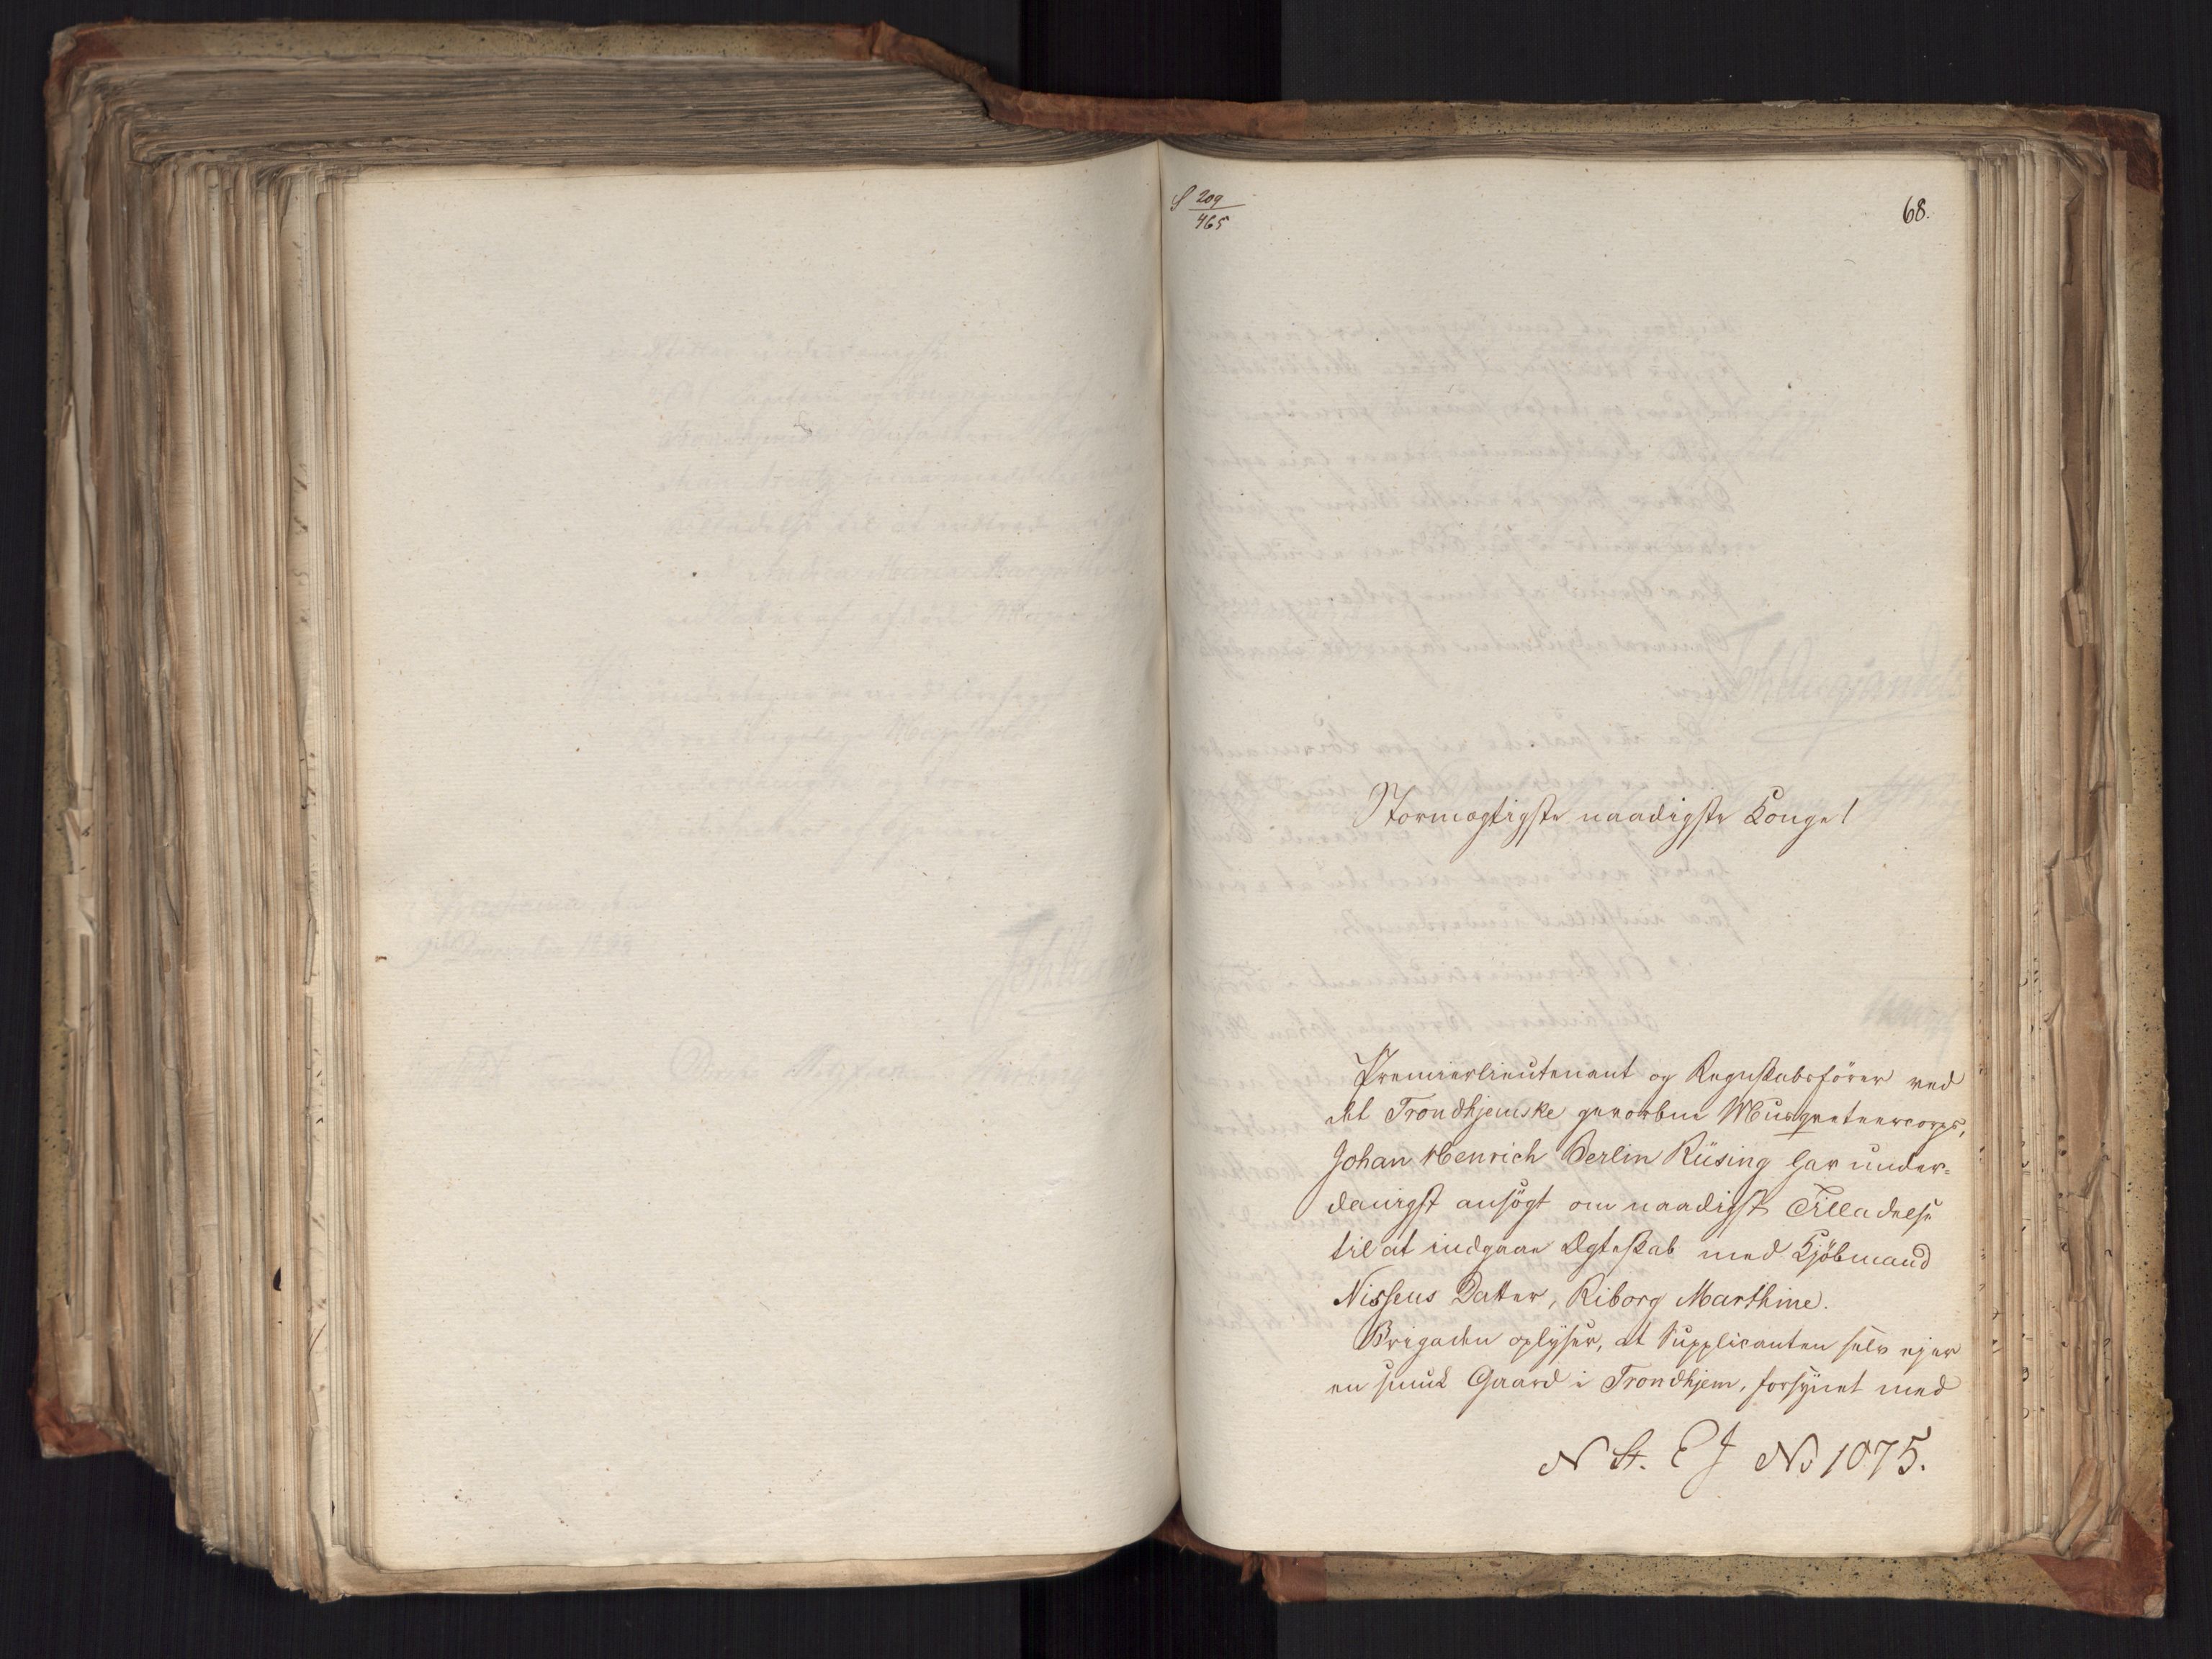 S 209/465
68.
Stormægtigste naadigste Konge!
Premierlieutenant og Regnskabsfører ved
det Trondhjemske gevorbne Musqueteercorps,
Johan Henrich Berlin Rüsing har under-
danigst ansögt om naadigst Tilladelse
til at indgaae Ægteskab med Kjöbmand
Nissens Datter, Riborg Marthine.
Brigaden oplyser, at Supplicanten selv ejer
en smuk Gaard i Trondhjem, forsynet med
N St. E J No 1075.